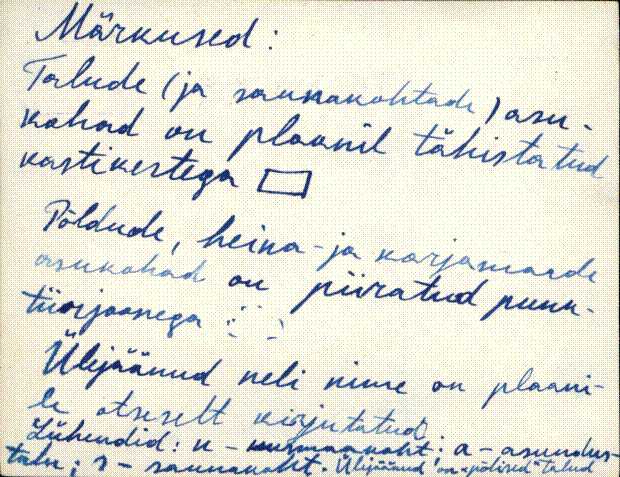 Märkused:
Talude (ja saunakohtade) asu-
kohad on plaanil tähistatud
kastikestega
Põldude, heina- ja karjamaade
asukohad on piiratud punk-
tiirjoonega
Ülejäänud neli nime on plaani-
le otseselt kirjutatud.
Lühendid: u - uusmaakoht; a - asundus-
talu; s - saunakoht. Ülejäänud on "põlised" talud